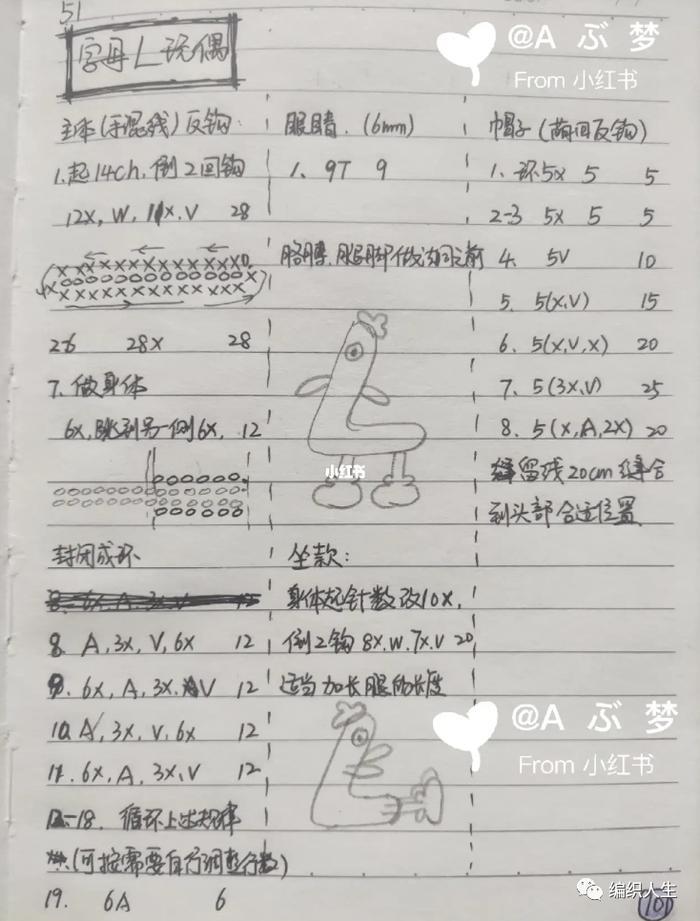 51
字母L玩偶
@A ぶ梦
From 小红书
主体(手混线)反钩:
1.起14ch,倒2回钩
12X, W, 11X, V 28
2-6 28X 28
7. 做身体
6X,跳到另一侧6X, 12
封闭成环
8. 6X, A, 3X, V 12
8. A, 3X, V, 6X 12
9. 6X, A, 3X, V 12
10. A, 3X, V, 6X 12
11. 6X, A, 3X, V 12
12-18. 循环上述规律
(可按需要自行调整行数)
19. 6A 6
眼睛. (6mm)
1. 9T 9
胳膊、腿脚做法同之前
小红书
坐款:
身体起针数改10X,
倒2钩 8X.W.7X.V 20
适当加长腿的长度
帽子(前回反钩)
1. 环5X 5 5
2-3 5X 5 5
4. 5V 10
5. 5(X,V) 15
6. 5(X,V,X) 20
7. 5(3X,V) 25
8. 5(X,A,2X) 20
留线20cm缝合
到头部合适位置
@A ぶ梦
From 小红书
编织人生
101